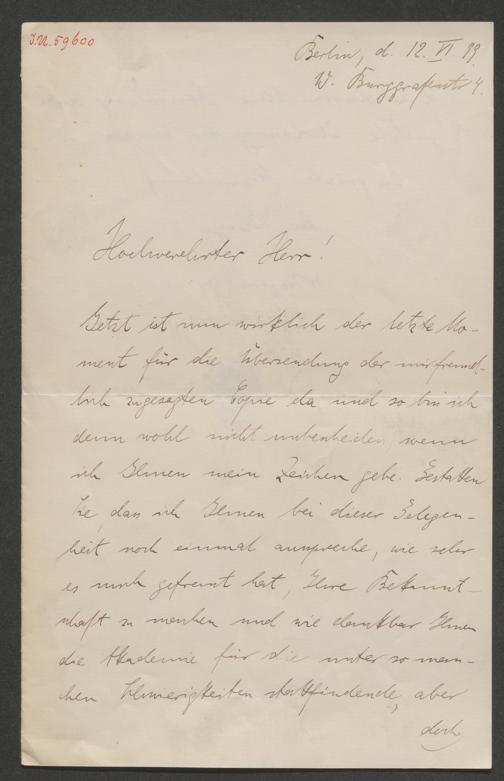 I.N. 59600
Berlin, d. 12. VI. 99.
W. Burggrafenstr 4.
Hochverehrter Herr!
Jetzt ist nun wirklich der letzte Mo-
ment für die Übersendung der mir freund-
lich zugesagten Copie da und so bin ich
denn wohl nicht unbescheiden wenn
ich Ihnen mein Zeichen gebe. Gestatten
Sie, dass ich Ihnen bei dieser Gelegen-
heit noch einmal ausspreche, wie sehr
es mich gefreut hat, Ihre Bekannt-
schaft zu machen und wie dankbar Ihnen
die Akademie für die unter so man-
chen Schwierigkeiten stattfindende, aber
doch